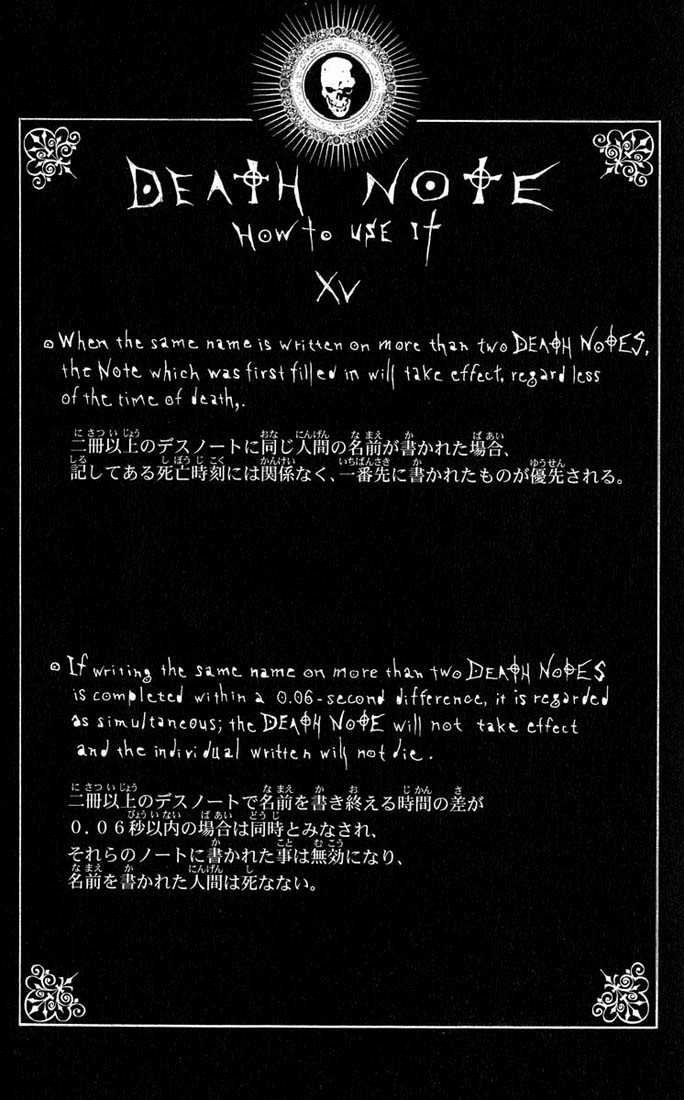 DEATH NOTE
HOW to USE It
XV
When the same name is written on more than two DEATH NOTES,
the Note which was first filled in will take effect, regardless
of the time of death,.
二冊以上のデスノートに同じ人間の名前が書かれた場合、
記してある死亡時刻には関係なく、一番先に書かれたものが優先される。
If writing the same name on more than two DEATH NOTES
is completed within a 0.06-second difference, it is regarded
as simultaneous; the DEATH NOTE will not take effect
and the individual written will not die.
二冊以上のデスノートで名前を書き終える時間の差が
0.06秒以内の場合は同時とみなされ、
それらのノートに書かれた事は無効になり、
名前を書かれた人間は死なない。